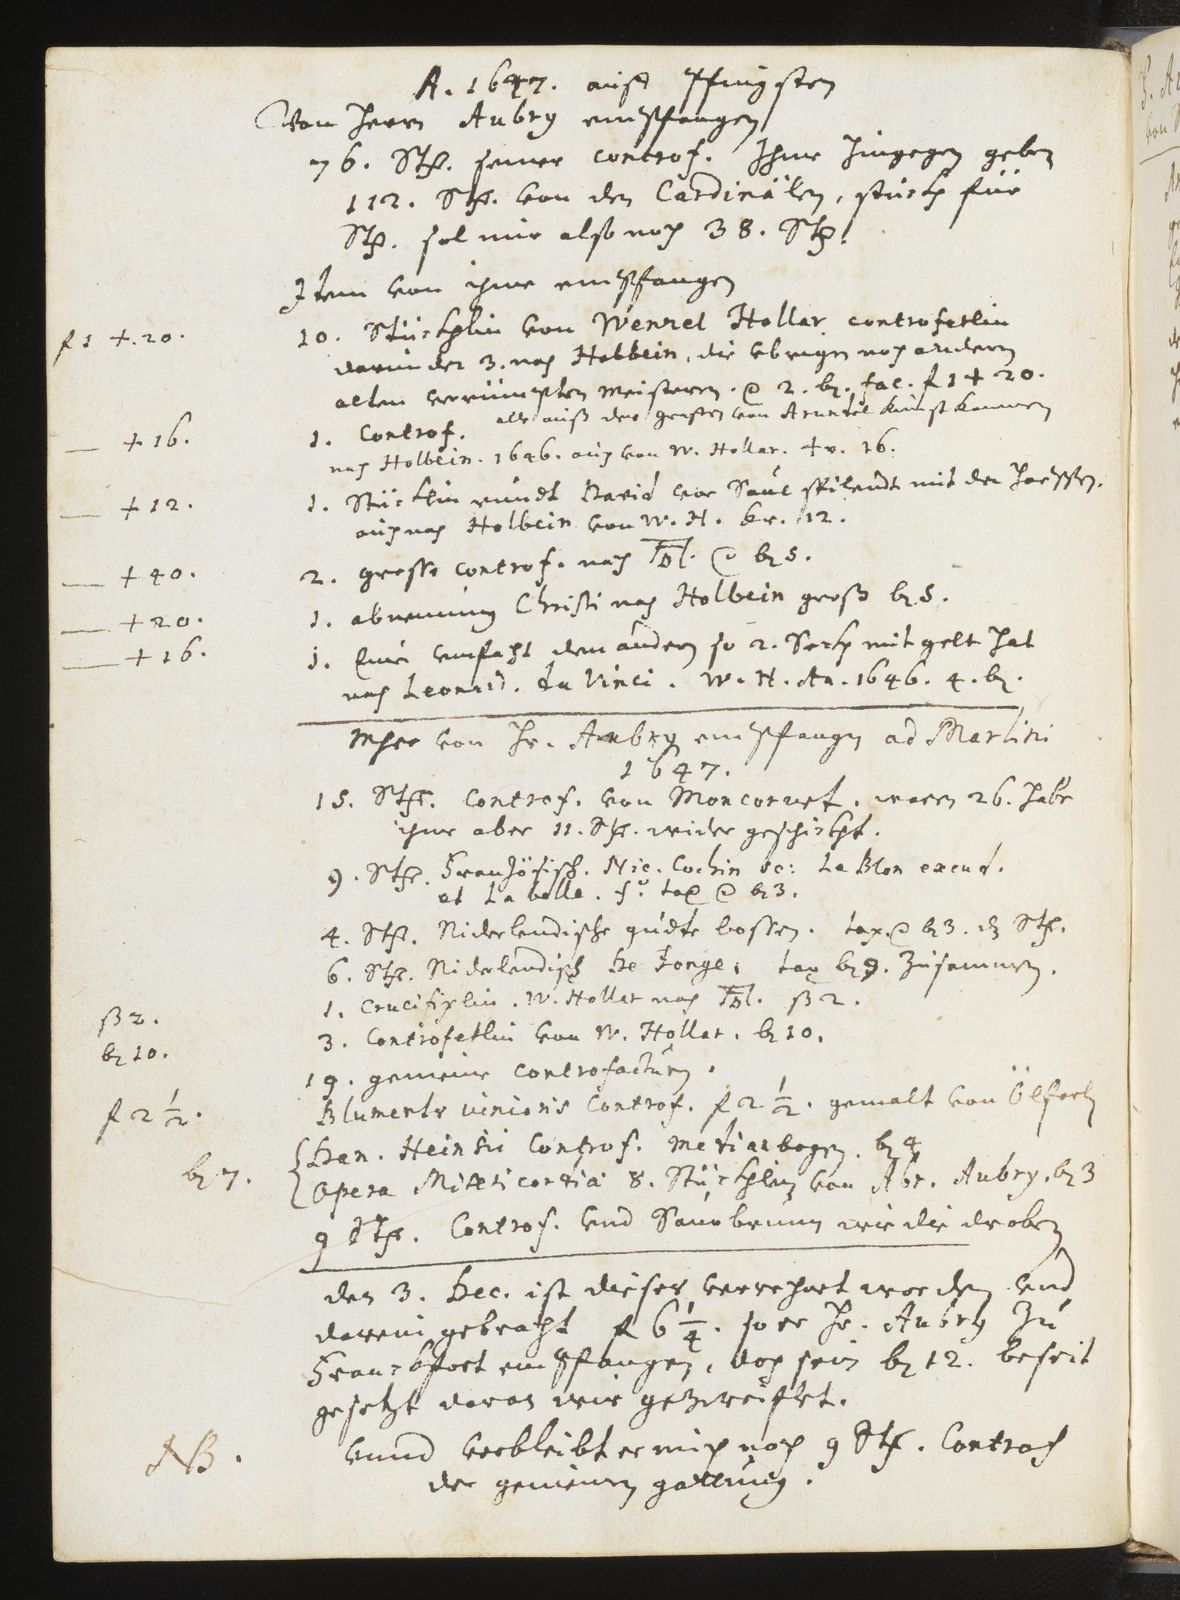 A. 1647. auff Pfingsten
Von Herrn Aubry empfangen
76. Stk. seiner controf. Ihme hingegen geben
112. Stk. von den Cardinälen, stuckh für
Stk. sol mir also noch 38. Stk.
Item von ihme empfangen
f 1 +. 20.
10. Stückhlin von Wenzel Hollar controfetlin
darunder 3. nach Holbein, die ubrigen nach andern
alten verrümpten Meistern. @ 2. bz. fac. f 1 + 20.
alle auß der grafen von Arundel kunst kammer
— + 16.
1. Controf.
nach Holbein. 1646. auch von W. Hollar. + r. 16.
— + 12.
1. Stücklin rundt David vor Saul spilendt mit der Harpffen.
auch nach Holbein von W. H. kr. 12.
— + 40.
2. grosse controf. nach @ bz 5.
— + 20.
1. abnemung Christi nach Holbein groß bz 5.
— + 16.
1. Eine empfacht den andern so 2. Seckh mit gelt hat
nach Leonard. da Vinci. W. H. An. 1646. 4. bz.
Mher von Hr. Aubry empfangen ad Martini
1647.
15. Stk. Controf. von Moncornet. waren 26. habe
ihme aber 11. Stk. wider geschickht.
9. Stk. Französisch. Nic. Cochin sc: La Blon excud.
et La belle. f. tax @ bz 3.
4. Stk. Niderlendische gudte bossen. tax. @ bz 3. Stk.
6. Stk. Niderlendisch De Jonge, tax bz 9. Zusammen.
ß 2.
1. Crucifixlin. W. Hollar nach ß 2.
bz 10.
3. Controfetlin von W. Hollar. bz 10.
19. gemeine controfacturen.
f 2 1/2.
Controf. f 2 1/2. gemalt von
bz 7.
Dan. Heinsii Controf. bz 4
Opera Misericordia 8. Stückhlin von Abr. Aubry. bz 3
9 Stk. Controf. und Saurbrunn wie die droben
den 3. Dec. ist dieses verrechnet worden und
darein gebracht f 6 1/4. so er Hr. Aubry Zu
Franckfort empfangen, doch sein bz 12. beseit
gesetzt daran wir gezweiflet.
NB.
unnd verbleibt er mich noch 9 Stk. Controf
der gemeinen gattung.